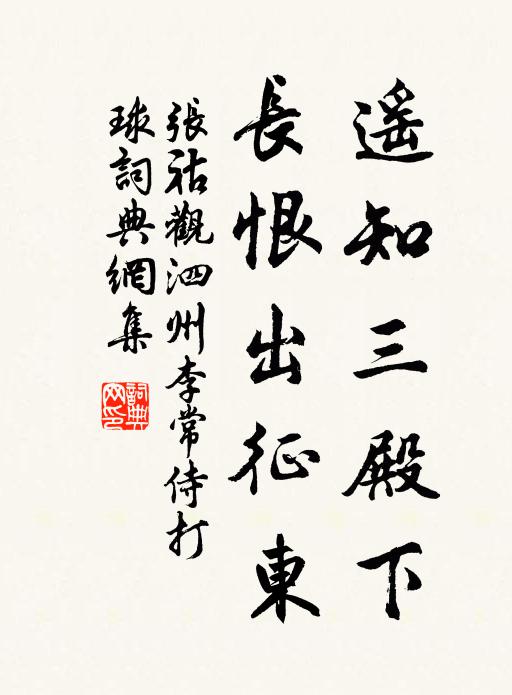 遥知三殿下
長恨出征東
張祜觀泗州李常侍打
球詞典網集
詞典網印